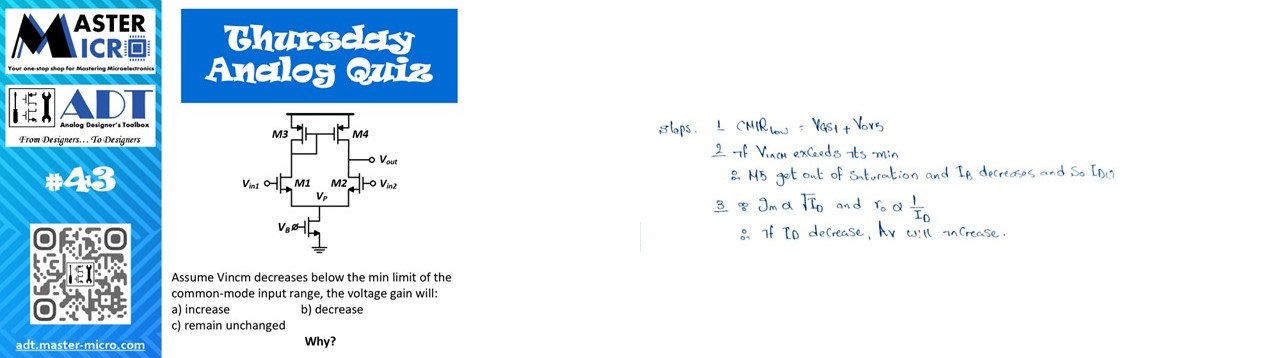 MASTER
MICRO
Your one-stop shop for Mastering Microelectronics
ADT
Analog Designer's Toolbox
From Designers... To Designers
#43
adt.master-micro.com
Thursday
Analog Quiz
M3
M4
Vout
Vin1
M1
M2
Vin2
VP
VB
Assume Vincm decreases below the min limit of the
common-mode input range, the voltage gain will:
a) increase b) decrease
c) remain unchanged
Why?
steps. 1 CMIRLow = VGS1 + VOV5
2 if VinCM exceeds its min
∴ M5 get out of saturation and IB decreases and so ID1,2
3 ∵ gm α √ID and ro α 1/ID
∴ if ID decrease, Av will increase.